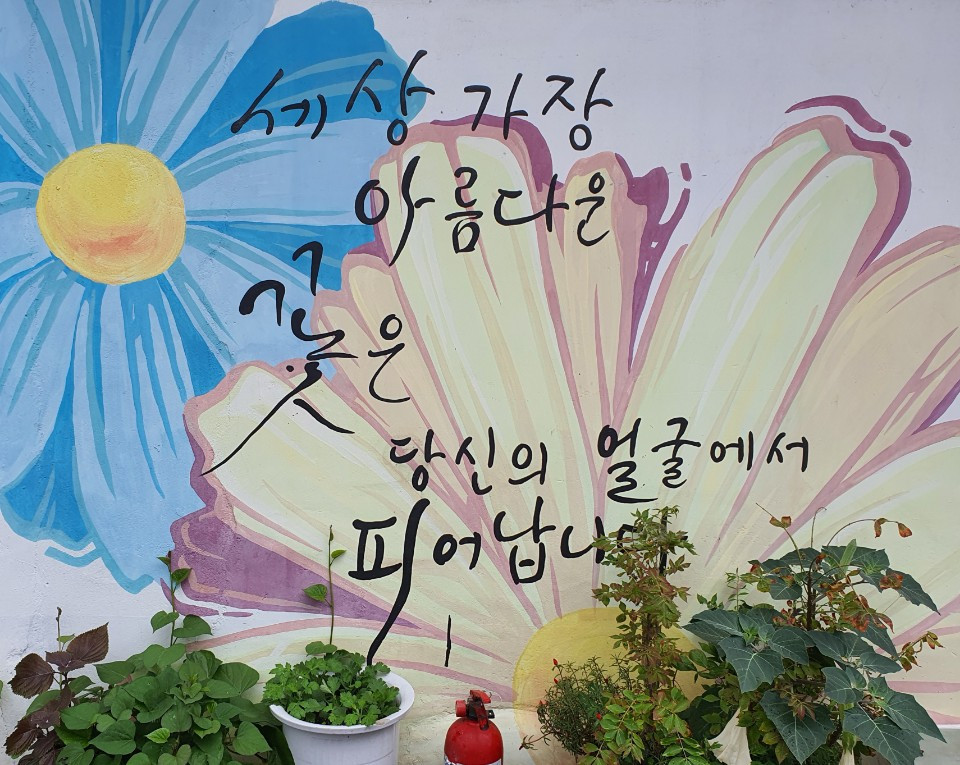 세상 가장
아름다운
꽃은
당신의 얼굴에서
피어납니다